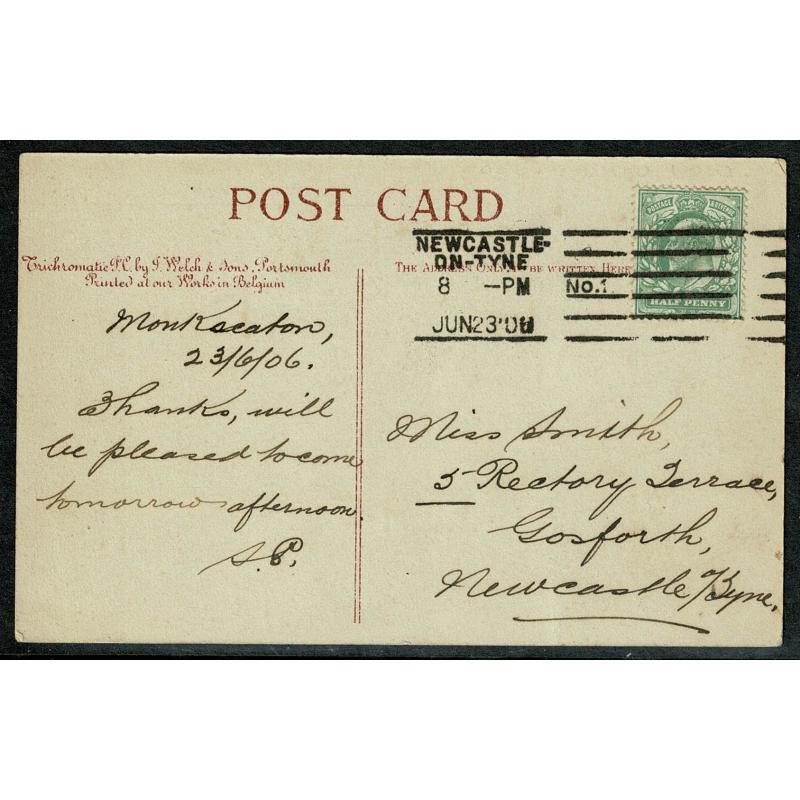 POST CARD
Trichromatic P.C. by J. Welch & Sons, Portsmouth
Printed at our Works in Belgium
THE ADDRESS ONLY TO BE WRITTEN HERE
NEWCASTLE-
ON-TYNE
8 -PM
JUN 23 '06
No. 1.
POSTAGE & REVENUE
HALF PENNY
Monkseaton,
23/6/06.
Thanks, will
be pleased to come
tomorrow afternoon.
S.P.
Miss Smith,
5 Rectory Terrace,
Gosforth,
Newcastle o/Tyne.